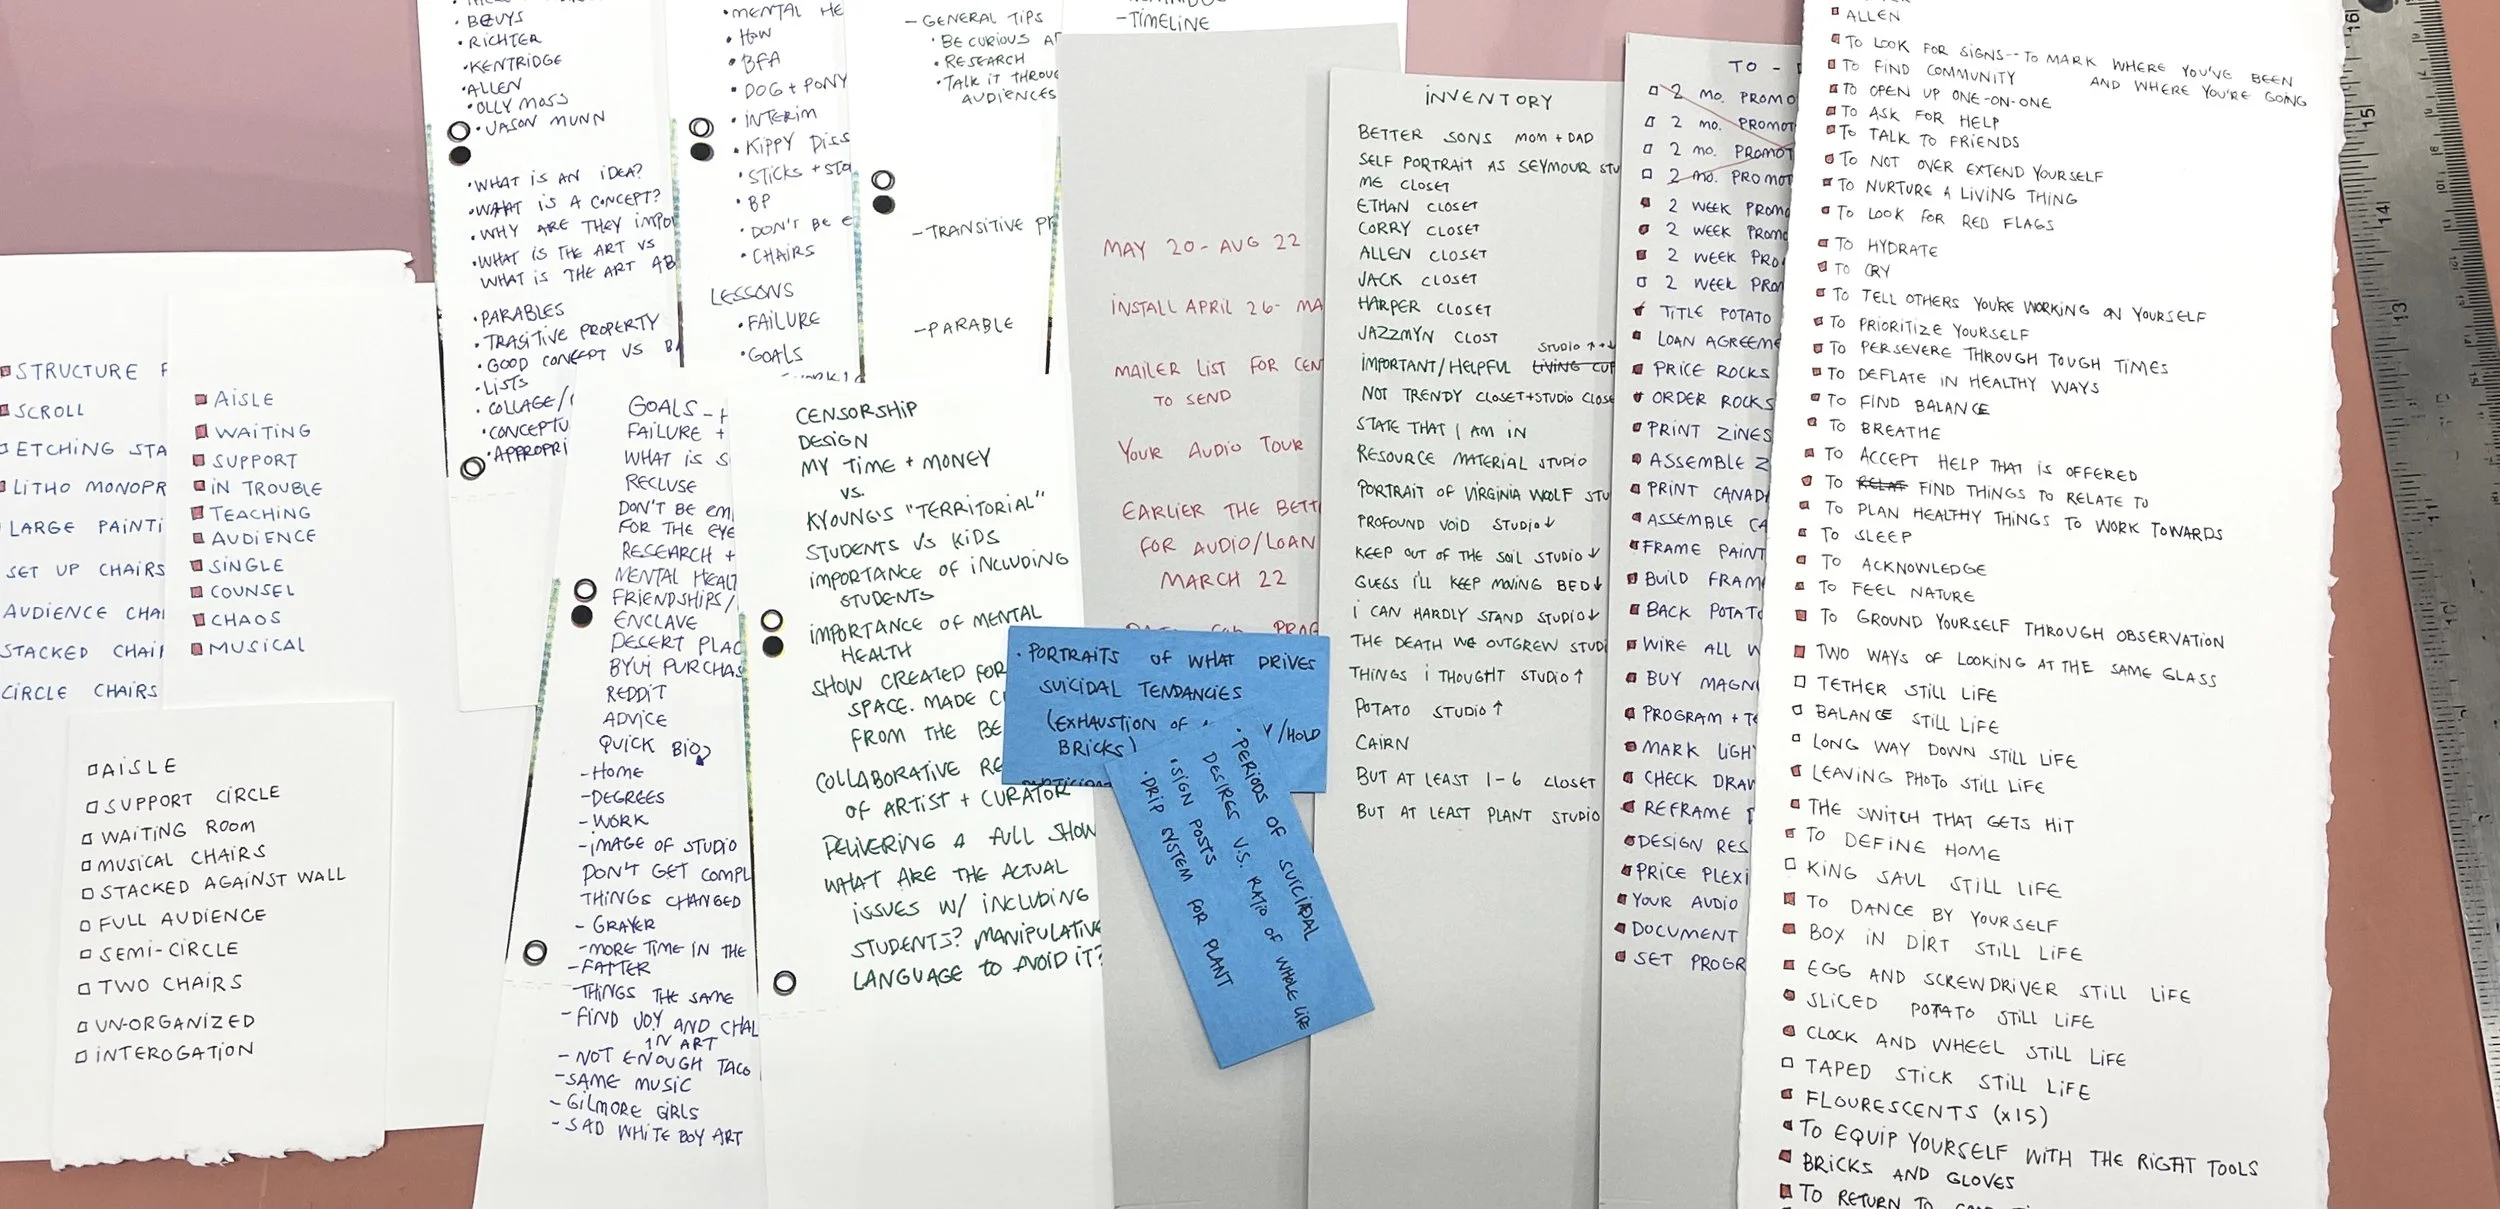 STRUCTURE F
SCROLL
ETCHING STA
LITHO MONOPR
LARGE PAINTI
SET UP CHAIRS
AUDIENCE CHAI
STACKED CHAIR
CIRCLE CHAIRS
AISLE
WAITING
SUPPORT
IN TROUBLE
TEACHING
AUDIENCE
SINGLE
COUNSEL
CHAOS
MUSICAL
AISLE
SUPPORT CIRCLE
WAITING ROOM
MUSICAL CHAIRS
STACKED AGAINST WALL
FULL AUDIENCE
SEMI-CIRCLE
TWO CHAIRS
UN-ORGANIZED
INTEROGATION
• BEUYS
• RICHTER
• KENTRIDGE
• ALLEN
• OLLY MOSS
• JASON MUNN
• WHAT IS AN IDEA?
• WHAT IS A CONCEPT?
• WHY ARE THEY IMPO
• WHAT IS THE ART VS
WHAT IS THE ART AB
• PARABLES
• TRASITIVE PROPERTY
• GOOD CONCEPT VS BA
• LISTS
• COLLAGE/
• CONCEPTU
• APPROPRI
• MENTAL HE
• HOW
• BFA
• DOG + PONY
• INTERIM
• KIPPY DISS
• STICKS + STO
• BP
• DON'T BE E
• CHAIRS
LESSONS
• FAILURE
• GOALS
- GENERAL TIPS
• BE CURIOUS A
• RESEARCH
• TALK IT THROUG
AUDIENCES
- TRANSITIVE PR
- PARABLE
- TIMELINE
GOALS -
FAILURE +
WHAT IS S
RECLUSE
DON'T BE EM
FOR THE EYE
RESEARCH +
MENTAL HEALT
FRIENDSHIPS/
ENCLAVE
DESERT PLAC
BYUI PURCHAS
REDDIT
ADVICE
QUICK BIO?
- HOME
- DEGREES
- WORK
- IMAGE OF STUDIO
DON'T GET COMPL
THINGS CHANGED
- GRAYER
- MORE TIME IN THE
- FATTER
THINGS THE SAME
- FIND JOY AND CHAL
IN ART
- NOT ENOUGH TACO
- SAME MUSIC
- GILMORE GIRLS
- SAD WHITE BOY ART
CENSORSHIP
DESIGN
MY TIME + MONEY
VS.
KYOUNG'S "TERRITORIAL"
STUDENTS VS KIDS
IMPORTANCE OF INCLUDING
STUDENTS
IMPORTANCE OF MENTAL
HEALTH
SHOW CREATED FOR
SPACE. MADE C
FROM THE BE
COLLABORATIVE RE
OF ARTIST + CURATOR
DELIVERING A FULL SHOW
WHAT ARE THE ACTUAL
ISSUES W/ INCLUDING
STUDENTS? MANIPULATIVE
LANGUAGE TO AVOID IT?
MAY 20 - AUG 22
INSTALL APRIL 26 - MA
MAILER LIST FOR CEN
TO SEND
YOUR AUDIO TOUR
EARLIER THE BETT
FOR AUDIO/LOAN
MARCH 22
• PORTRAITS OF WHAT DRIVES
SUICIDAL TENDANCIES
(EXHAUSTION OF Y/HOLD
BRICKS)
• PERIODS OF SUICIDAL
DESIRES V.S. RATIO OF WHOLE LIFE
• SIGN POSTS
• DRIP SYSTEM FOR PLANT
INVENTORY
BETTER SONS MOM + DAD
SELF PORTRAIT AS SEYMOUR STU
ME CLOSET
ETHAN CLOSET
CORRY CLOSET
ALLEN CLOSET
JACK CLOSET
HARPER CLOSET
JAZZMYN CLOST
STUDIO ↑ + ↓
IMPORTANT/HELPFUL LIVING CUP
NOT TRENDY CLOSET + STUDIO CLOSE
STATE THAT I AM IN
RESOURCE MATERIAL STUDIO
PORTRAIT OF VIRGINIA WOOLF STU
PROFOUND VOID STUDIO ↓
KEEP OUT OF THE SOIL STUDIO ↓
GUESS I'LL KEEP MOVING BED ↓
I CAN HARDLY STAND STUDIO ↓
THE DEATH WE OUTGREW STUDI
THINGS I THOUGHT STUDIO ↑
POTATO STUDIO ↑
CAIRN
BUT AT LEAST 1-6 CLOSET
BUT AT LEAST PLANT STUDIO
TO - D
2 MO. PROMO
2 MO. PROMOT
2 MO. PROMOT
2 MO. PROMOT
2 WEEK PROMO
2 WEEK PROMO
2 WEEK PRO
2 WEEK PRO
TITLE POTATO
LOAN AGREEME
PRICE ROCKS
ORDER ROCKS
PRINT ZINES
ASSEMBLE Z
PRINT CANAD
ASSEMBLE CA
FRAME PAINT
BUILD FRAM
BACK POTATO
WIRE ALL W
BUY MAGN
PROGRAM + TE
MARK LIGH
CHECK DRAW
REFRAME
DESIGN RES
PRICE PLEXI
YOUR AUDIO
DOCUMENT
SET PROGR
ALLEN
TO LOOK FOR SIGNS -- TO MARK WHERE YOU'VE BEEN
AND WHERE YOU'RE GOING
TO FIND COMMUNITY
TO OPEN UP ONE-ON-ONE
TO ASK FOR HELP
TO TALK TO FRIENDS
TO NOT OVER EXTEND YOURSELF
TO NURTURE A LIVING THING
TO LOOK FOR RED FLAGS
TO HYDRATE
TO CRY
TO TELL OTHERS YOU'RE WORKING ON YOURSELF
TO PRIORITIZE YOURSELF
TO PERSEVERE THROUGH TOUGH TIMES
TO DEFLATE IN HEALTHY WAYS
TO FIND BALANCE
TO BREATHE
TO ACCEPT HELP THAT IS OFFERED
TO RELAT FIND THINGS TO RELATE TO
TO PLAN HEALTHY THINGS TO WORK TOWARDS
TO SLEEP
TO ACKNOWLEDGE
TO FEEL NATURE
TO GROUND YOURSELF THROUGH OBSERVATION
TWO WAYS OF LOOKING AT THE SAME GLASS
TETHER STILL LIFE
BALANCE STILL LIFE
LONG WAY DOWN STILL LIFE
LEAVING PHOTO STILL LIFE
THE SWITCH THAT GETS HIT
TO DEFINE HOME
KING SAUL STILL LIFE
TO DANCE BY YOURSELF
BOX IN DIRT STILL LIFE
EGG AND SCREWDRIVER STILL LIFE
SLICED POTATO STILL LIFE
CLOCK AND WHEEL STILL LIFE
TAPED STICK STILL LIFE
FLOURESCENTS (x15)
TO EQUIP YOURSELF WITH THE RIGHT TOOLS
BRICKS AND GLOVES
TO RETURN TO
16
15
14
13